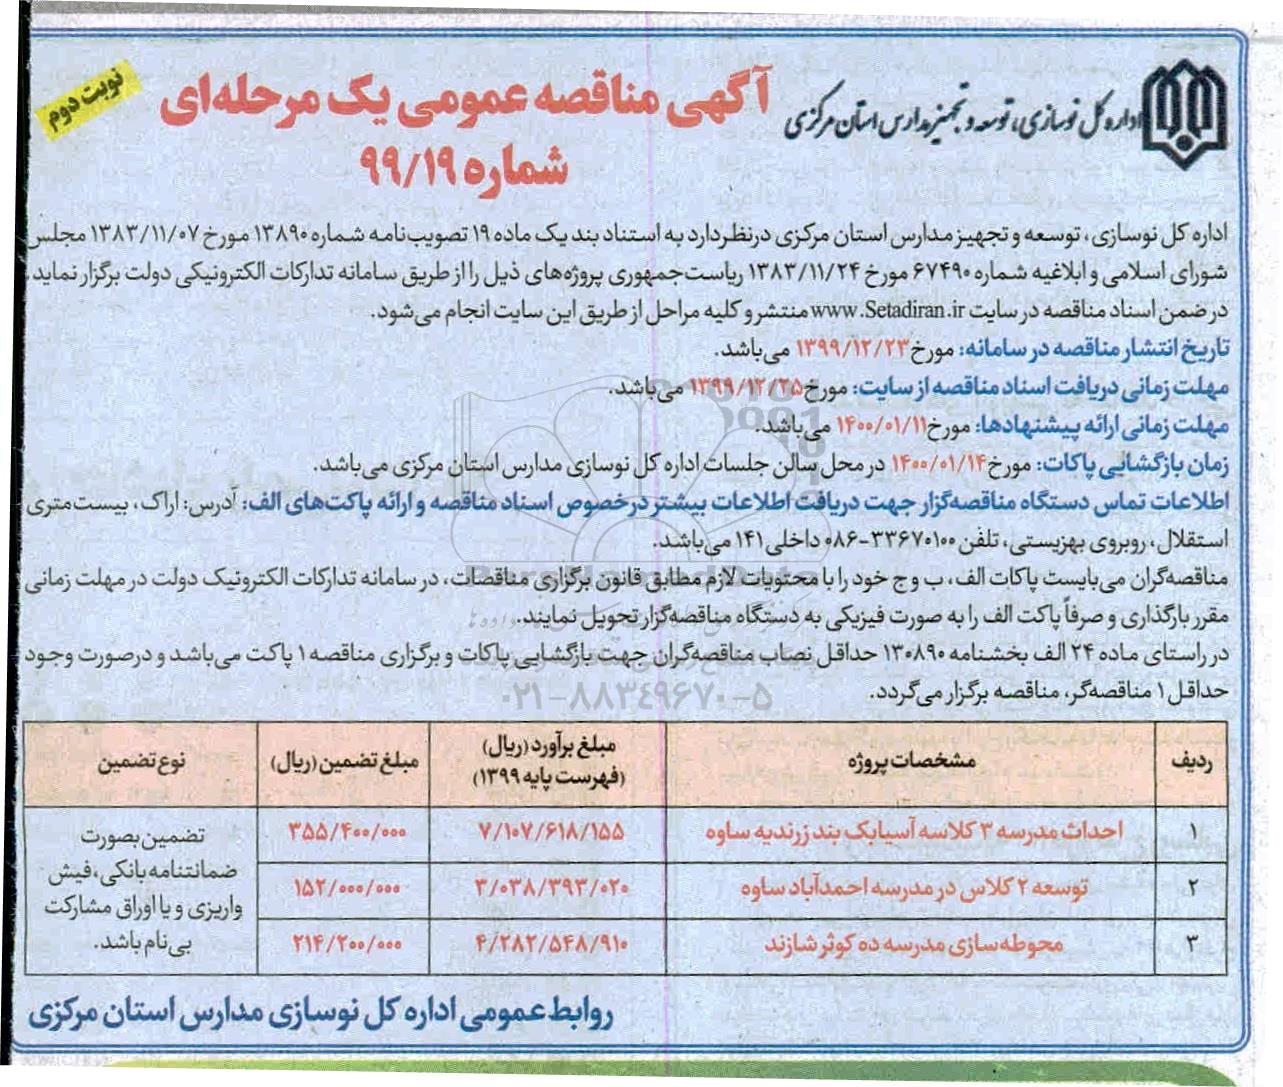 اداره کل نوسازی، توسعه و تجهیز مدارس استان مرکزی
آگهی مناقصه عمومی یک مرحله‌ای
شماره ۹۹/۱۹
نوبت دوم
اداره کل نوسازی، توسعه و تجهیز مدارس استان مرکزی درنظر دارد به استناد بند یک ماده ۱۹ تصویب‌نامه شماره ۱۳۸۹۰ مورخ ۱۳۸۳/۱۱/۰۷ مجلس
شورای اسلامی و ابلاغیه شماره ۶۷۴۹۰ مورخ ۱۳۸۳/۱۱/۲۴ ریاست‌جمهوری پروژه‌های ذیل را از طریق سامانه تدارکات الکترونیکی دولت برگزار نماید،
در ضمن اسناد مناقصه در سایت www.Setadiran.ir منتشر و کلیه مراحل از طریق این سایت انجام می‌شود.
تاریخ انتشار مناقصه در سامانه: مورخ ۱۳۹۹/۱۲/۲۳ می‌باشد.
مهلت زمانی دریافت اسناد مناقصه از سایت: مورخ ۱۳۹۹/۱۲/۲۵ می‌باشد.
مهلت زمانی ارائه پیشنهادها: مورخ ۱۴۰۰/۰۱/۱۱ می‌باشد.
زمان بازگشایی پاکات: مورخ ۱۴۰۰/۰۱/۱۴ در محل سالن جلسات اداره کل نوسازی مدارس استان مرکزی می‌باشد.
اطلاعات تماس دستگاه مناقصه‌گزار جهت دریافت اطلاعات بیشتر در خصوص اسناد مناقصه و ارائه پاکت‌های الف: آدرس: اراک، بیست‌متری
استقلال، روبروی بهزیستی، تلفن ۳۳۶۷۰۱۰۰-۰۸۶ داخلی ۱۴۱ می‌باشد.
مناقصه‌گران می‌بایست پاکات الف، ب و ج خود را با محتویات لازم مطابق قانون برگزاری مناقصات، در سامانه تدارکات الکترونیک دولت در مهلت زمانی
مقرر بارگذاری و صرفاً پاکت الف را به صورت فیزیکی به دستگاه مناقصه‌گزار تحویل نمایند.
در راستای ماده ۲۴ الف بخشنامه ۱۳۰۸۹۰ حداقل نصاب مناقصه‌گران جهت بازگشایی پاکات و برگزاری مناقصه ۱ پاکت می‌باشد و درصورت وجود
۰۲۱-۸۸۳۴۹۶۷۰-۵
حداقل ۱ مناقصه‌گر، مناقصه برگزار می‌گردد.
ردیف مشخصات پروژه مبلغ برآورد (ریال) (فهرست پایه ۱۳۹۹) مبلغ تضمین (ریال) نوع تضمین
۱ احداث مدرسه ۳ کلاسه آسیابک بند زرندیه ساوه ۷/۱۰۷/۶۱۸/۱۵۵ ۳۵۵/۴۰۰/۰۰۰
۲ توسعه ۲ کلاس در مدرسه احمدآباد ساوه ۳/۰۳۸/۳۹۳/۰۲۰ ۱۵۲/۰۰۰/۰۰۰
۳ محوطه سازی مدرسه ده کوثر شازند ۴/۲۸۲/۵۴۸/۹۱۰ ۲۱۴/۲۰۰/۰۰۰
تضمین بصورت
ضمانتنامه بانکی، فیش
واریزی و یا اوراق مشارکت
بی‌نام باشد.
روابط عمومی اداره کل نوسازی مدارس استان مرکزی